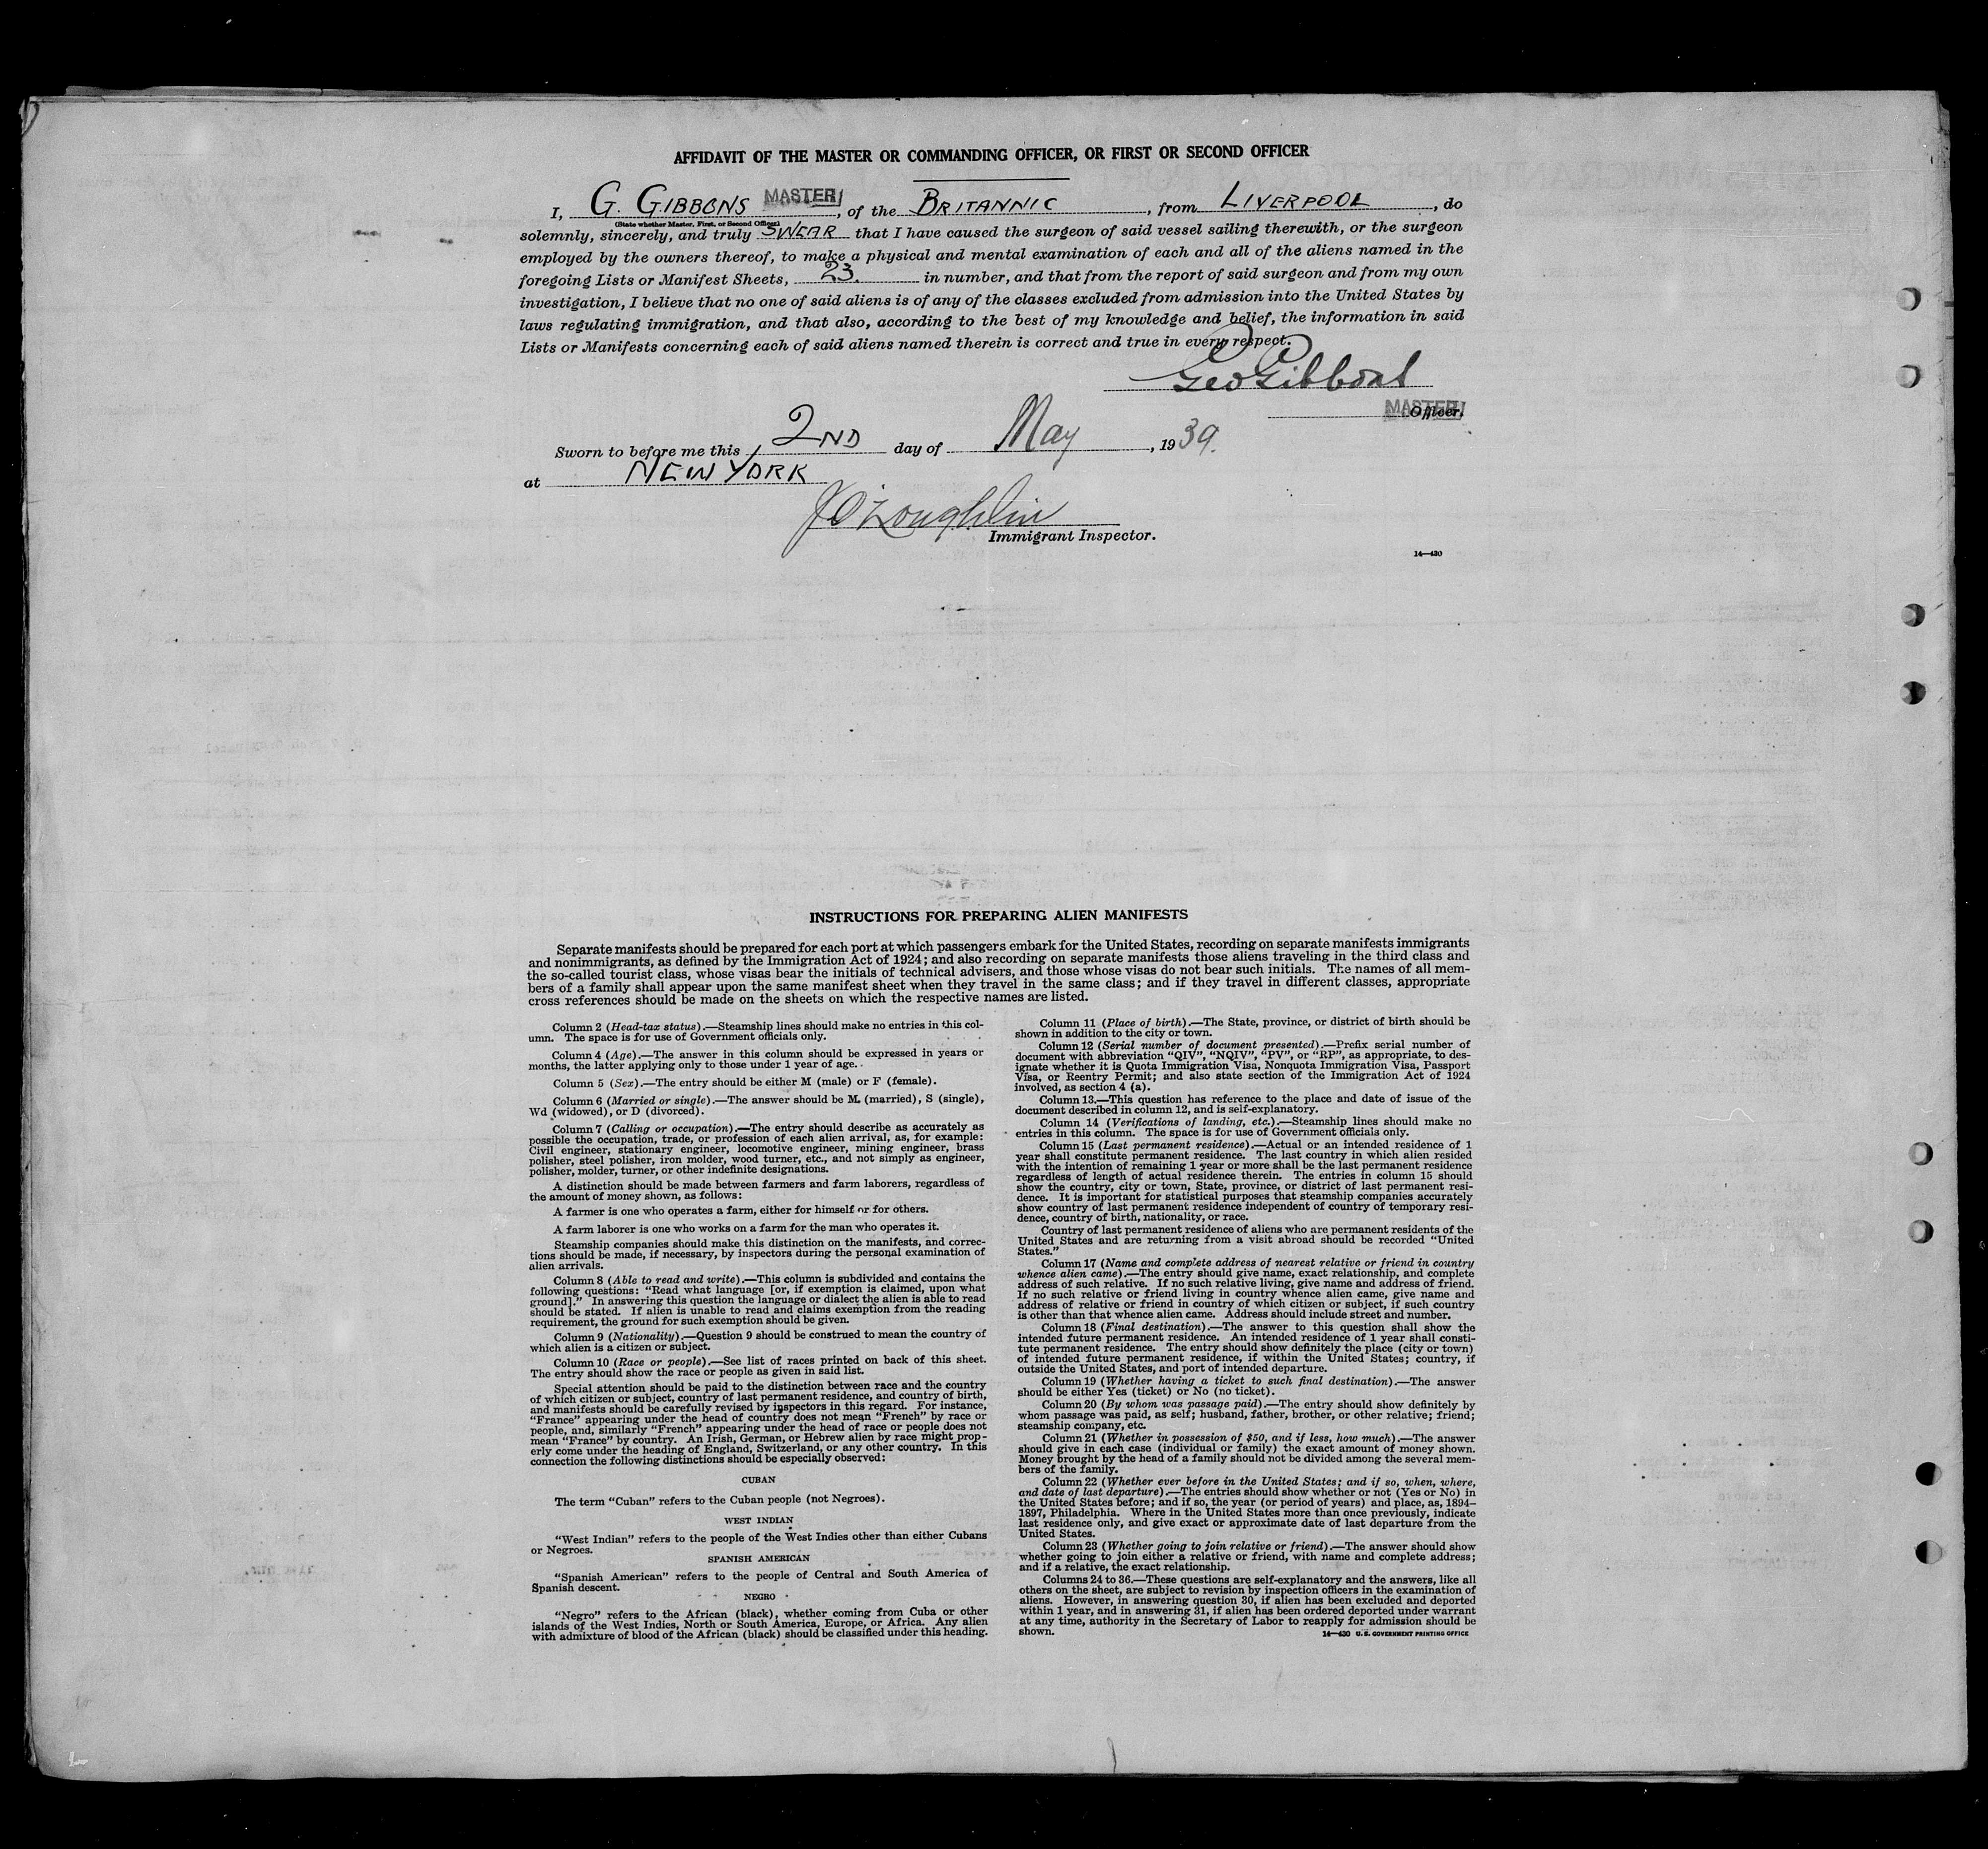 AFFIDAVIT OF THE MASTER OR COMMANDING OFFICER, OR FIRST OR SECOND OFFICER
I, G. GIBBONS MASTER, of the BRITANNIC, from LIVERPOOL, do
(State whether Master, First, or Second Officer)
solemnly, sincerely, and truly SWEAR that I have caused the surgeon of said vessel sailing therewith, or the surgeon
employed by the owners thereof, to make a physical and mental examination of each and all of the aliens named in the
foregoing Lists or Manifest Sheets, 23. in number, and that from the report of said surgeon and from my own
investigation, I believe that no one of said aliens is of any of the classes excluded from admission into the United States by
laws regulating immigration, and that also, according to the best of my knowledge and belief, the information in said
Lists or Manifests concerning each of said aliens named therein is correct and true in every respect.
Geo Gibbons
MASTER Officer.
Sworn to before me this 2ND day of May, 1939.
at NEW YORK
J O'Loughlin
Immigrant Inspector.
14—430
INSTRUCTIONS FOR PREPARING ALIEN MANIFESTS
Separate manifests should be prepared for each port at which passengers embark for the United States, recording on separate manifests immigrants
and nonimmigrants, as defined by the Immigration Act of 1924; and also recording on separate manifests those aliens traveling in the third class and
the so-called tourist class, whose visas bear the initials of technical advisers, and those whose visas do not bear such initials. The names of all mem-
bers of a family shall appear upon the same manifest sheet when they travel in the same class; and if they travel in different classes, appropriate
cross references should be made on the sheets on which the respective names are listed.
Column 2 (Head-tax status).—Steamship lines should make no entries in this col-
umn. The space is for use of Government officials only.
Column 4 (Age).—The answer in this column should be expressed in years or
months, the latter applying only to those under 1 year of age.
Column 5 (Sex).—The entry should be either M (male) or F (female).
Column 6 (Married or single).—The answer should be M (married), S (single),
Wd (widowed), or D (divorced).
Column 7 (Calling or occupation).—The entry should describe as accurately as
possible the occupation, trade, or profession of each alien arrival, as, for example:
Civil engineer, stationary engineer, locomotive engineer, mining engineer, brass
polisher, steel polisher, iron molder, wood turner, etc., and not simply as engineer,
polisher, molder, turner, or other indefinite designations.
A distinction should be made between farmers and farm laborers, regardless of
the amount of money shown, as follows:
A farmer is one who operates a farm, either for himself or for others.
A farm laborer is one who works on a farm for the man who operates it.
Steamship companies should make this distinction on the manifests, and correc-
tions should be made, if necessary, by inspectors during the personal examination of
alien arrivals.
Column 8 (Able to read and write).—This column is subdivided and contains the
following questions: "Read what language [or, if exemption is claimed, upon what
ground]." In answering this question the language or dialect the alien is able to read
should be stated. If alien is unable to read and claims exemption from the reading
requirement, the ground for such exemption should be given.
Column 9 (Nationality).—Question 9 should be construed to mean the country of
which alien is a citizen or subject.
Column 10 (Race or people).—See list of races printed on back of this sheet.
The entry should show the race or people as given in said list.
Special attention should be paid to the distinction between race and the country
of which citizen or subject, country of last permanent residence, and country of birth,
and manifests should be carefully revised by inspectors in this regard. For instance,
"France" appearing under the head of country does not mean "French" by race or
people, and, similarly "French" appearing under the head of race or people does not
mean "France" by country. An Irish, German, or Hebrew alien by race might prop-
erly come under the heading of England, Switzerland, or any other country. In this
connection the following distinctions should be especially observed:
CUBAN
The term "Cuban" refers to the Cuban people (not Negroes).
WEST INDIAN
"West Indian" refers to the people of the West Indies other than either Cubans
or Negroes.
SPANISH AMERICAN
"Spanish American" refers to the people of Central and South America of
Spanish descent.
NEGRO
"Negro" refers to the African (black), whether coming from Cuba or other
islands of the West Indies, North or South America, Europe, or Africa. Any alien
with admixture of blood of the African (black) should be classified under this heading.
Column 11 (Place of birth).—The State, province, or district of birth should be
shown in addition to the city or town.
Column 12 (Serial number of document presented).—Prefix serial number of
document with abbreviation "QIV", "NQIV", "PV", or "RP", as appropriate, to des-
ignate whether it is Quota Immigration Visa, Nonquota Immigration Visa, Passport
Visa, or Reentry Permit; and also state section of the Immigration Act of 1924
involved, as section 4 (a).
Column 13.—This question has reference to the place and date of issue of the
document described in column 12, and is self-explanatory.
Column 14 (Verifications of landing, etc.).—Steamship lines should make no
entries in this column. The space is for use of Government officials only.
Column 15 (Last permanent residence).—Actual or an intended residence of 1
year shall constitute permanent residence. The last country in which alien resided
with the intention of remaining 1 year or more shall be the last permanent residence
regardless of length of actual residence therein. The entries in column 15 should
show the country, city or town, State, province, or district of last permanent resi-
dence. It is important for statistical purposes that steamship companies accurately
show country of last permanent residence independent of country of temporary resi-
dence, country of birth, nationality, or race.
Country of last permanent residence of aliens who are permanent residents of the
United States and are returning from a visit abroad should be recorded "United
States."
Column 17 (Name and complete address of nearest relative or friend in country
whence alien came).—The entry should give name, exact relationship, and complete
address of such relative. If no such relative living, give name and address of friend.
If no such relative or friend living in country whence alien came, give name and
address of relative or friend in country of which citizen or subject, if such country
is other than that whence alien came. Address should include street and number.
Column 18 (Final destination).—The answer to this question shall show the
intended future permanent residence. An intended residence of 1 year shall consti-
tute permanent residence. The entry should show definitely the place (city or town)
of intended future permanent residence, if within the United States; country, if
outside the United States, and port of intended departure.
Column 19 (Whether having a ticket to such final destination).—The answer
should be either Yes (ticket) or No (no ticket).
Column 20 (By whom was passage paid).—The entry should show definitely by
whom passage was paid, as self; husband, father, brother, or other relative; friend;
steamship company, etc.
Column 21 (Whether in possession of $50, and if less, how much).—The answer
should give in each case (individual or family) the exact amount of money shown.
Money brought by the head of a family should not be divided among the several mem-
bers of the family.
Column 22 (Whether ever before in the United States; and if so, when, where,
and date of last departure).—The entries should show whether or not (Yes or No) in
the United States before; and if so, the year (or period of years) and place, as, 1894–
1897, Philadelphia. Where in the United States more than once previously, indicate
last residence only, and give exact or approximate date of last departure from the
United States.
Column 23 (Whether going to join relative or friend).—The answer should show
whether going to join either a relative or friend, with name and complete address;
and if a relative, the exact relationship.
Columns 24 to 36.—These questions are self-explanatory and the answers, like all
others on the sheet, are subject to revision by inspection officers in the examination of
aliens. However, in answering question 30, if alien has been excluded and deported
within 1 year, and in answering 31, if alien has been ordered deported under warrant
at any time, authority in the Secretary of Labor to reapply for admission should be
shown.
14—430 U. S. GOVERNMENT PRINTING OFFICE